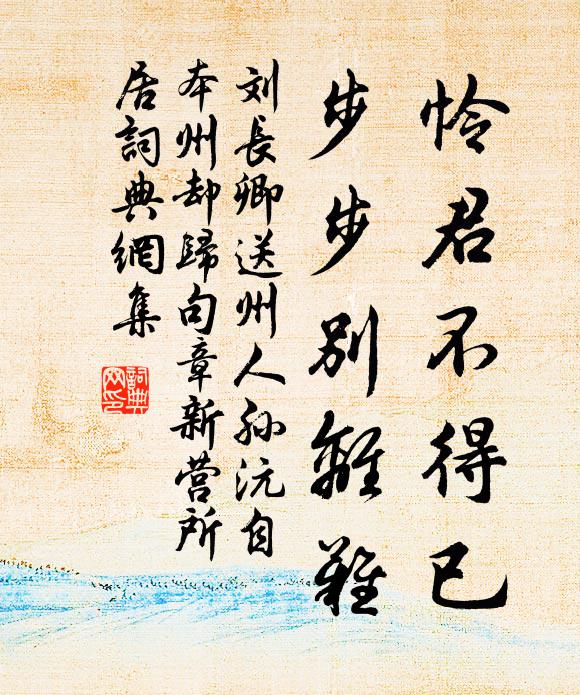 怜君不得已
步步別離難
刘長卿送州人孙沅自
本州却歸句章新营所
居詞典網集
詞典
网印